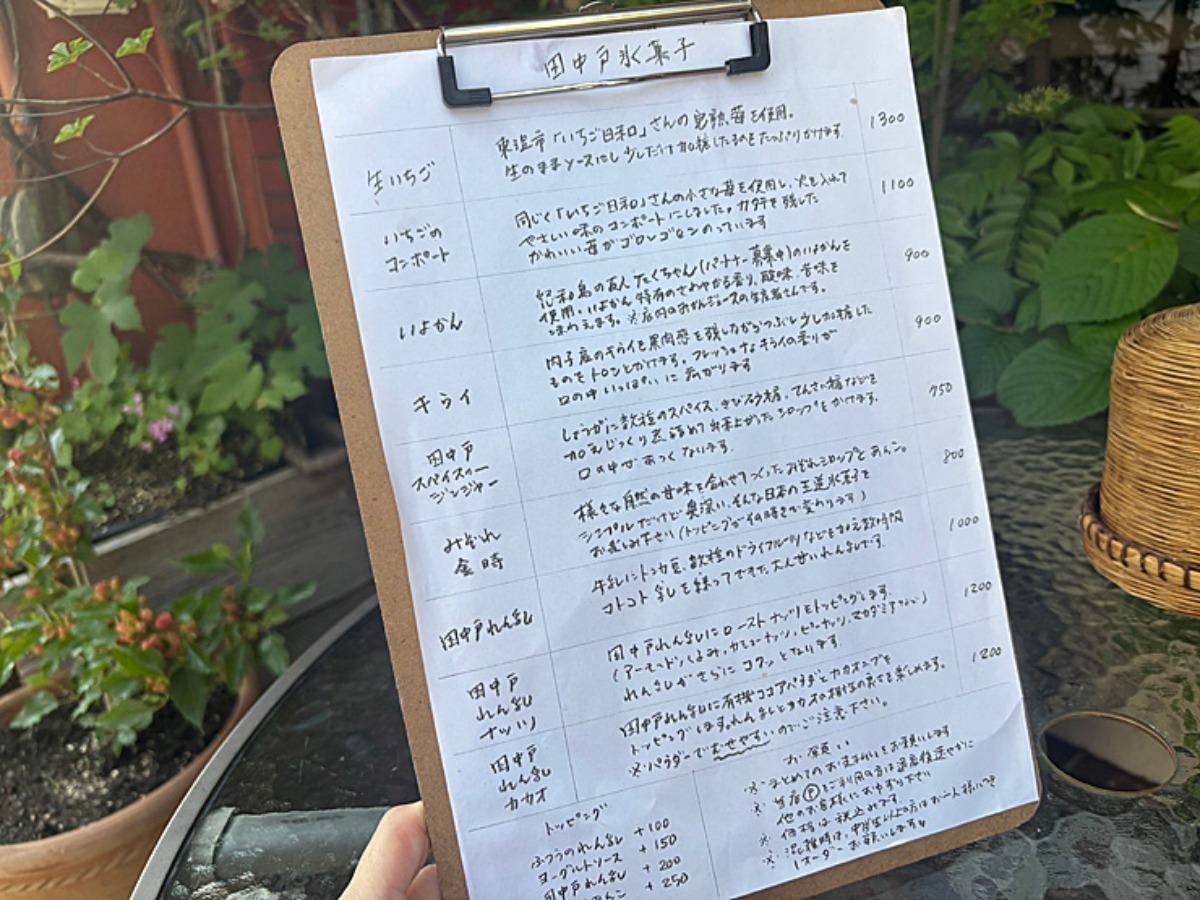 田中戸氷菓子
生いちご
東温市「いちご日和」さんの完熟苺を使用。
生のままソースにし少しだけ加糖したものをたっぷりかけます
1300
いちごの
コンポート
同じく「いちご日和」さんの小さな苺を使用し、火を入れて
やさしい味のコンポートにしました。カタチを残した
かわいい苺がゴロンゴロンのっています
1100
いよかん
島の友人たくちゃん(パートナー募集中)のいよかんを
使用。いよかん特有のさわやかな香り、酸味、苦味を
味わえます。※店内のみかんジュースの生産者さんです。
900
キウイ
内子産のキウイを果肉感を残しながらつぶし少し加糖した
ものをトロンとかけます。フレッシュなキウイの香りが
口の中いっぱいに広がります
900
田中戸
スパイスィー
ジンジャー
しょうがに数種のスパイス、きび砂糖、てんさい糖などを
加えじっくり煮詰めて出来上がったシロップをかけます。
口の中があつくなります。
750
みぞれ
金時
様々な自然の甘味を合わせてつくったみぞれシロップとあんこ。
シンプルだけど奥深い、そんな日本の王道氷菓子を
お楽しみ下さい(トッピングが何時もで変わります)
800
田中戸れん乳
牛乳にトンカ豆、数種のドライフルーツなどを加え数時間
コトコト乳を練ってできた大人甘いれん乳です。
1000
田中戸
れん乳
ナッツ
田中戸れん乳にローストナッツをトッピングします。
(アーモンド、くるみ、カシューナッツ、ピーナッツ、マカダミアナッツ)
れん乳がさらにコクッとなります。
1200
田中戸
れん乳
カカオ
田中戸れん乳に有機ココアパウダーとカカオニブを
トッピングします。れん乳とカカオの相性の良さを楽しめます。
※パウダーでむせやすいのでご注意下さい。
1200
トッピング
ふつうのれん乳 +100
ヨーグルトソース +150
田中戸れん乳 +200
+250
お願い
※まとめてのお支払いをお願いします
※当店Ⓟをご利用の方は退店後速やかに
他のお客様におゆずり下さい
※価格は税込みです
※混雑時は、中学生以上の方はお一人様につき
1オーダーお願いします